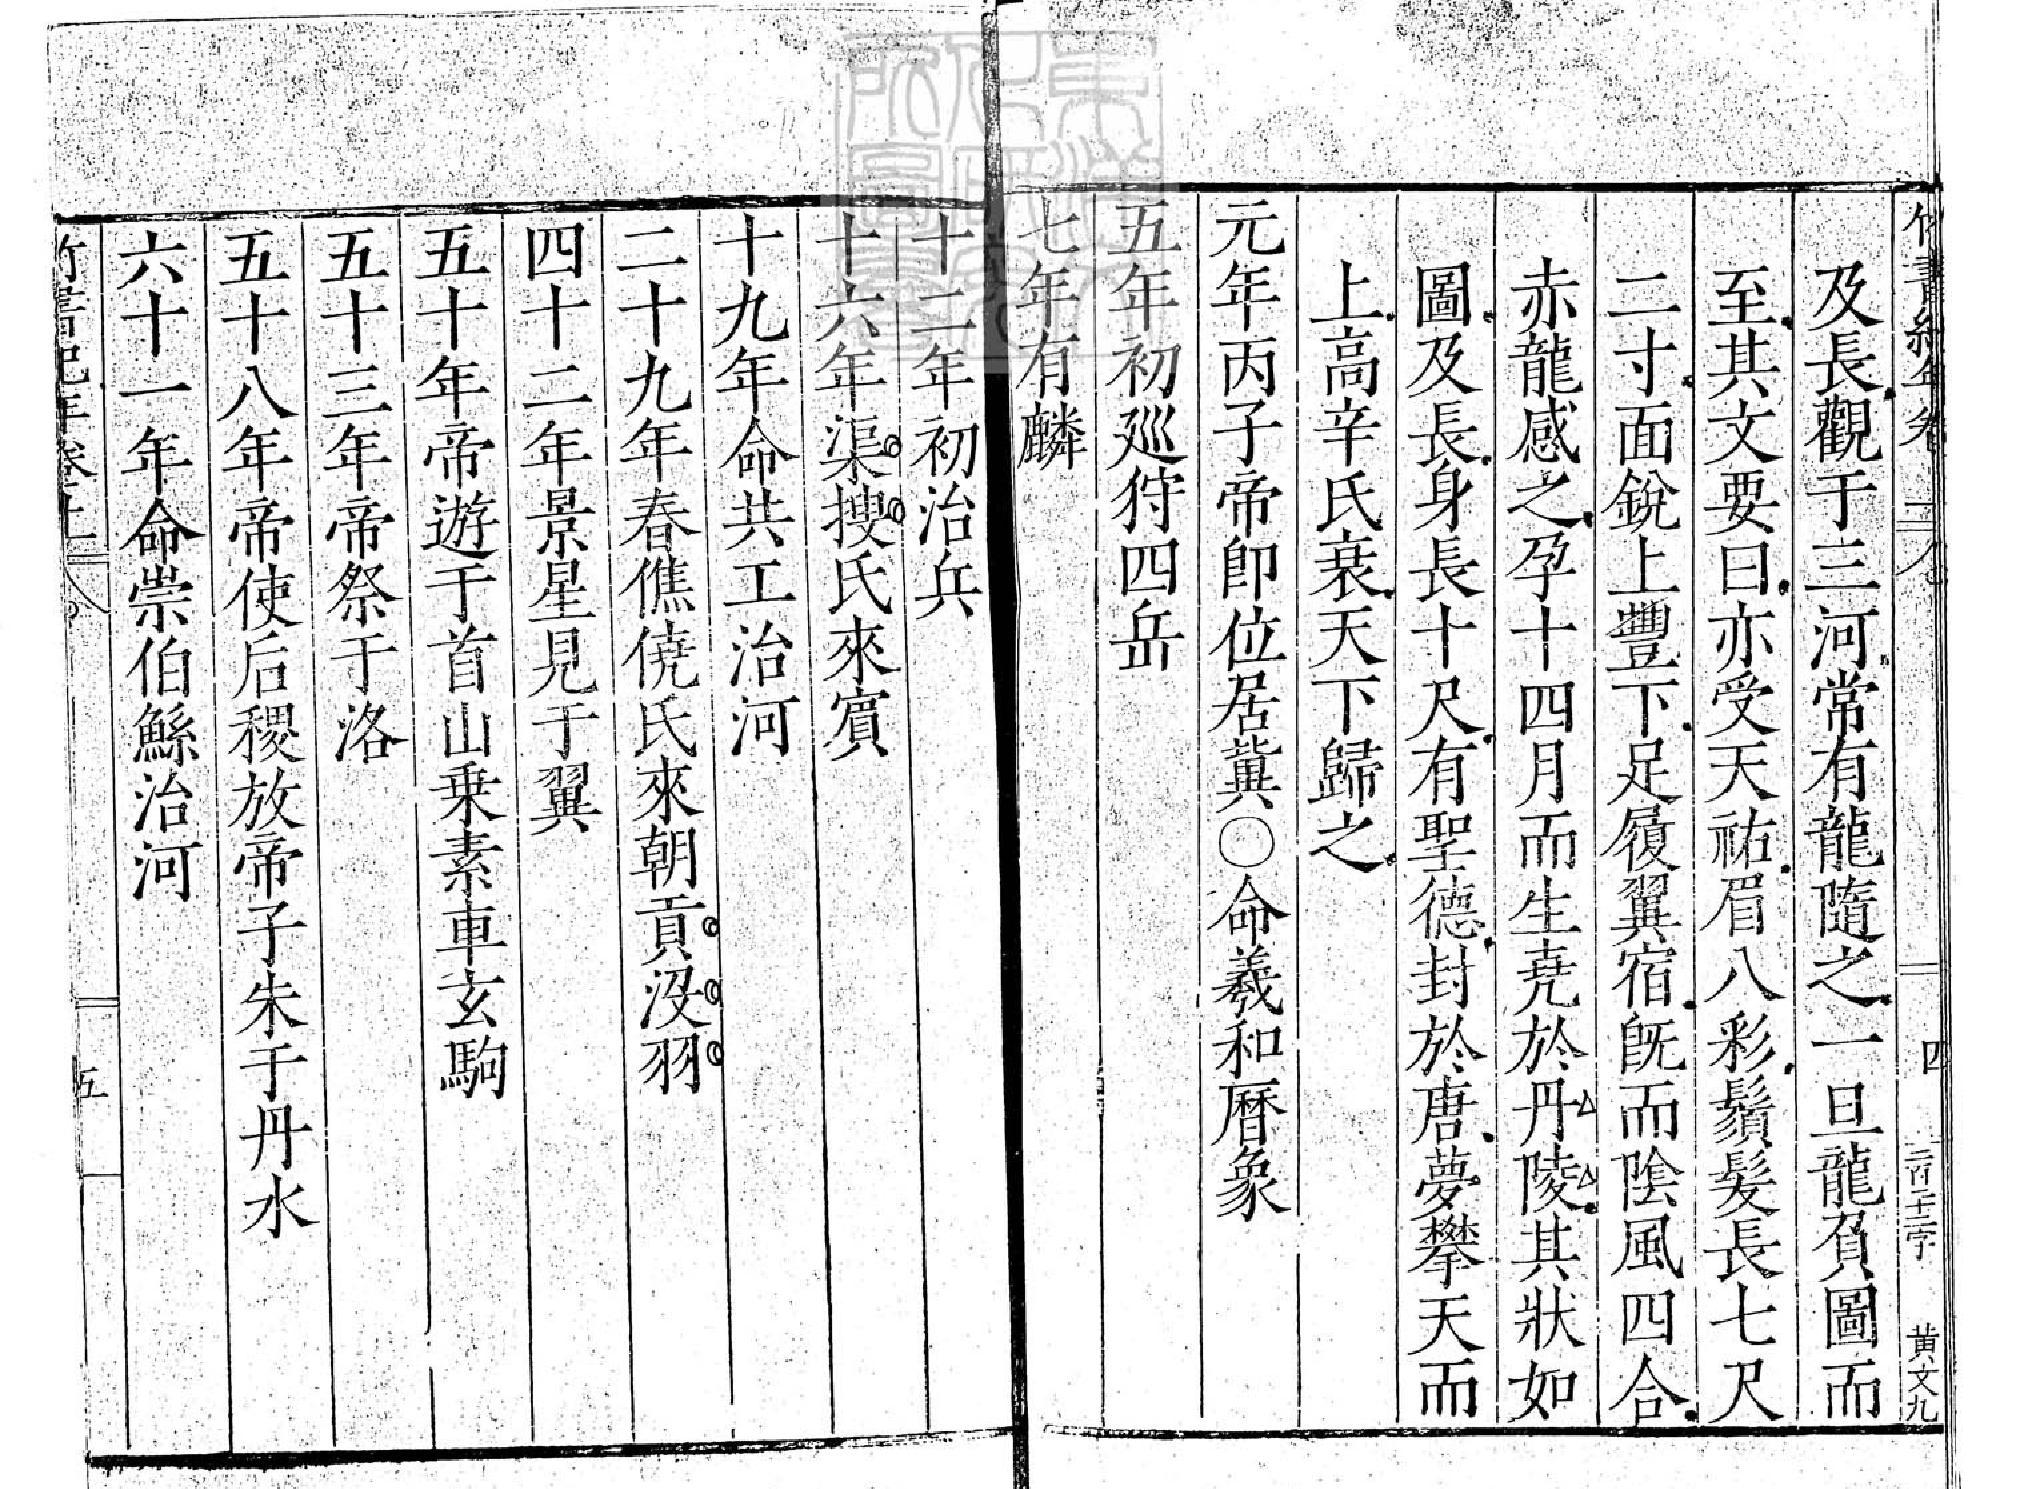 竹書紀年卷上
四
二百十三字
黄文九
及長觀于三河常有龍隨之一旦龍負圖而
至其文要曰亦受天祐眉八彩鬚髮長七尺
二寸面銳上豐下足履翼宿旣而陰風四合
赤龍感之孕十四月而生堯於丹陵其狀如
圖及長身長十尺有聖德封於唐夢攀天而
上高辛氏衰天下歸之
元年丙子帝卽位居冀〇命羲和曆象
五年初巡狩四岳
七年有麟
十二年初治兵
十六年渠搜氏來賓
十九年命共工治河
二十九年春僬僥氏來朝貢沒羽
四十二年景星見于翼
五十年帝遊于首山乗素車玄駒
五十三年帝祭于洛
五十八年帝使后稷放帝子朱于丹水
六十一年命崇伯鯀治河
竹書紀年卷上
五